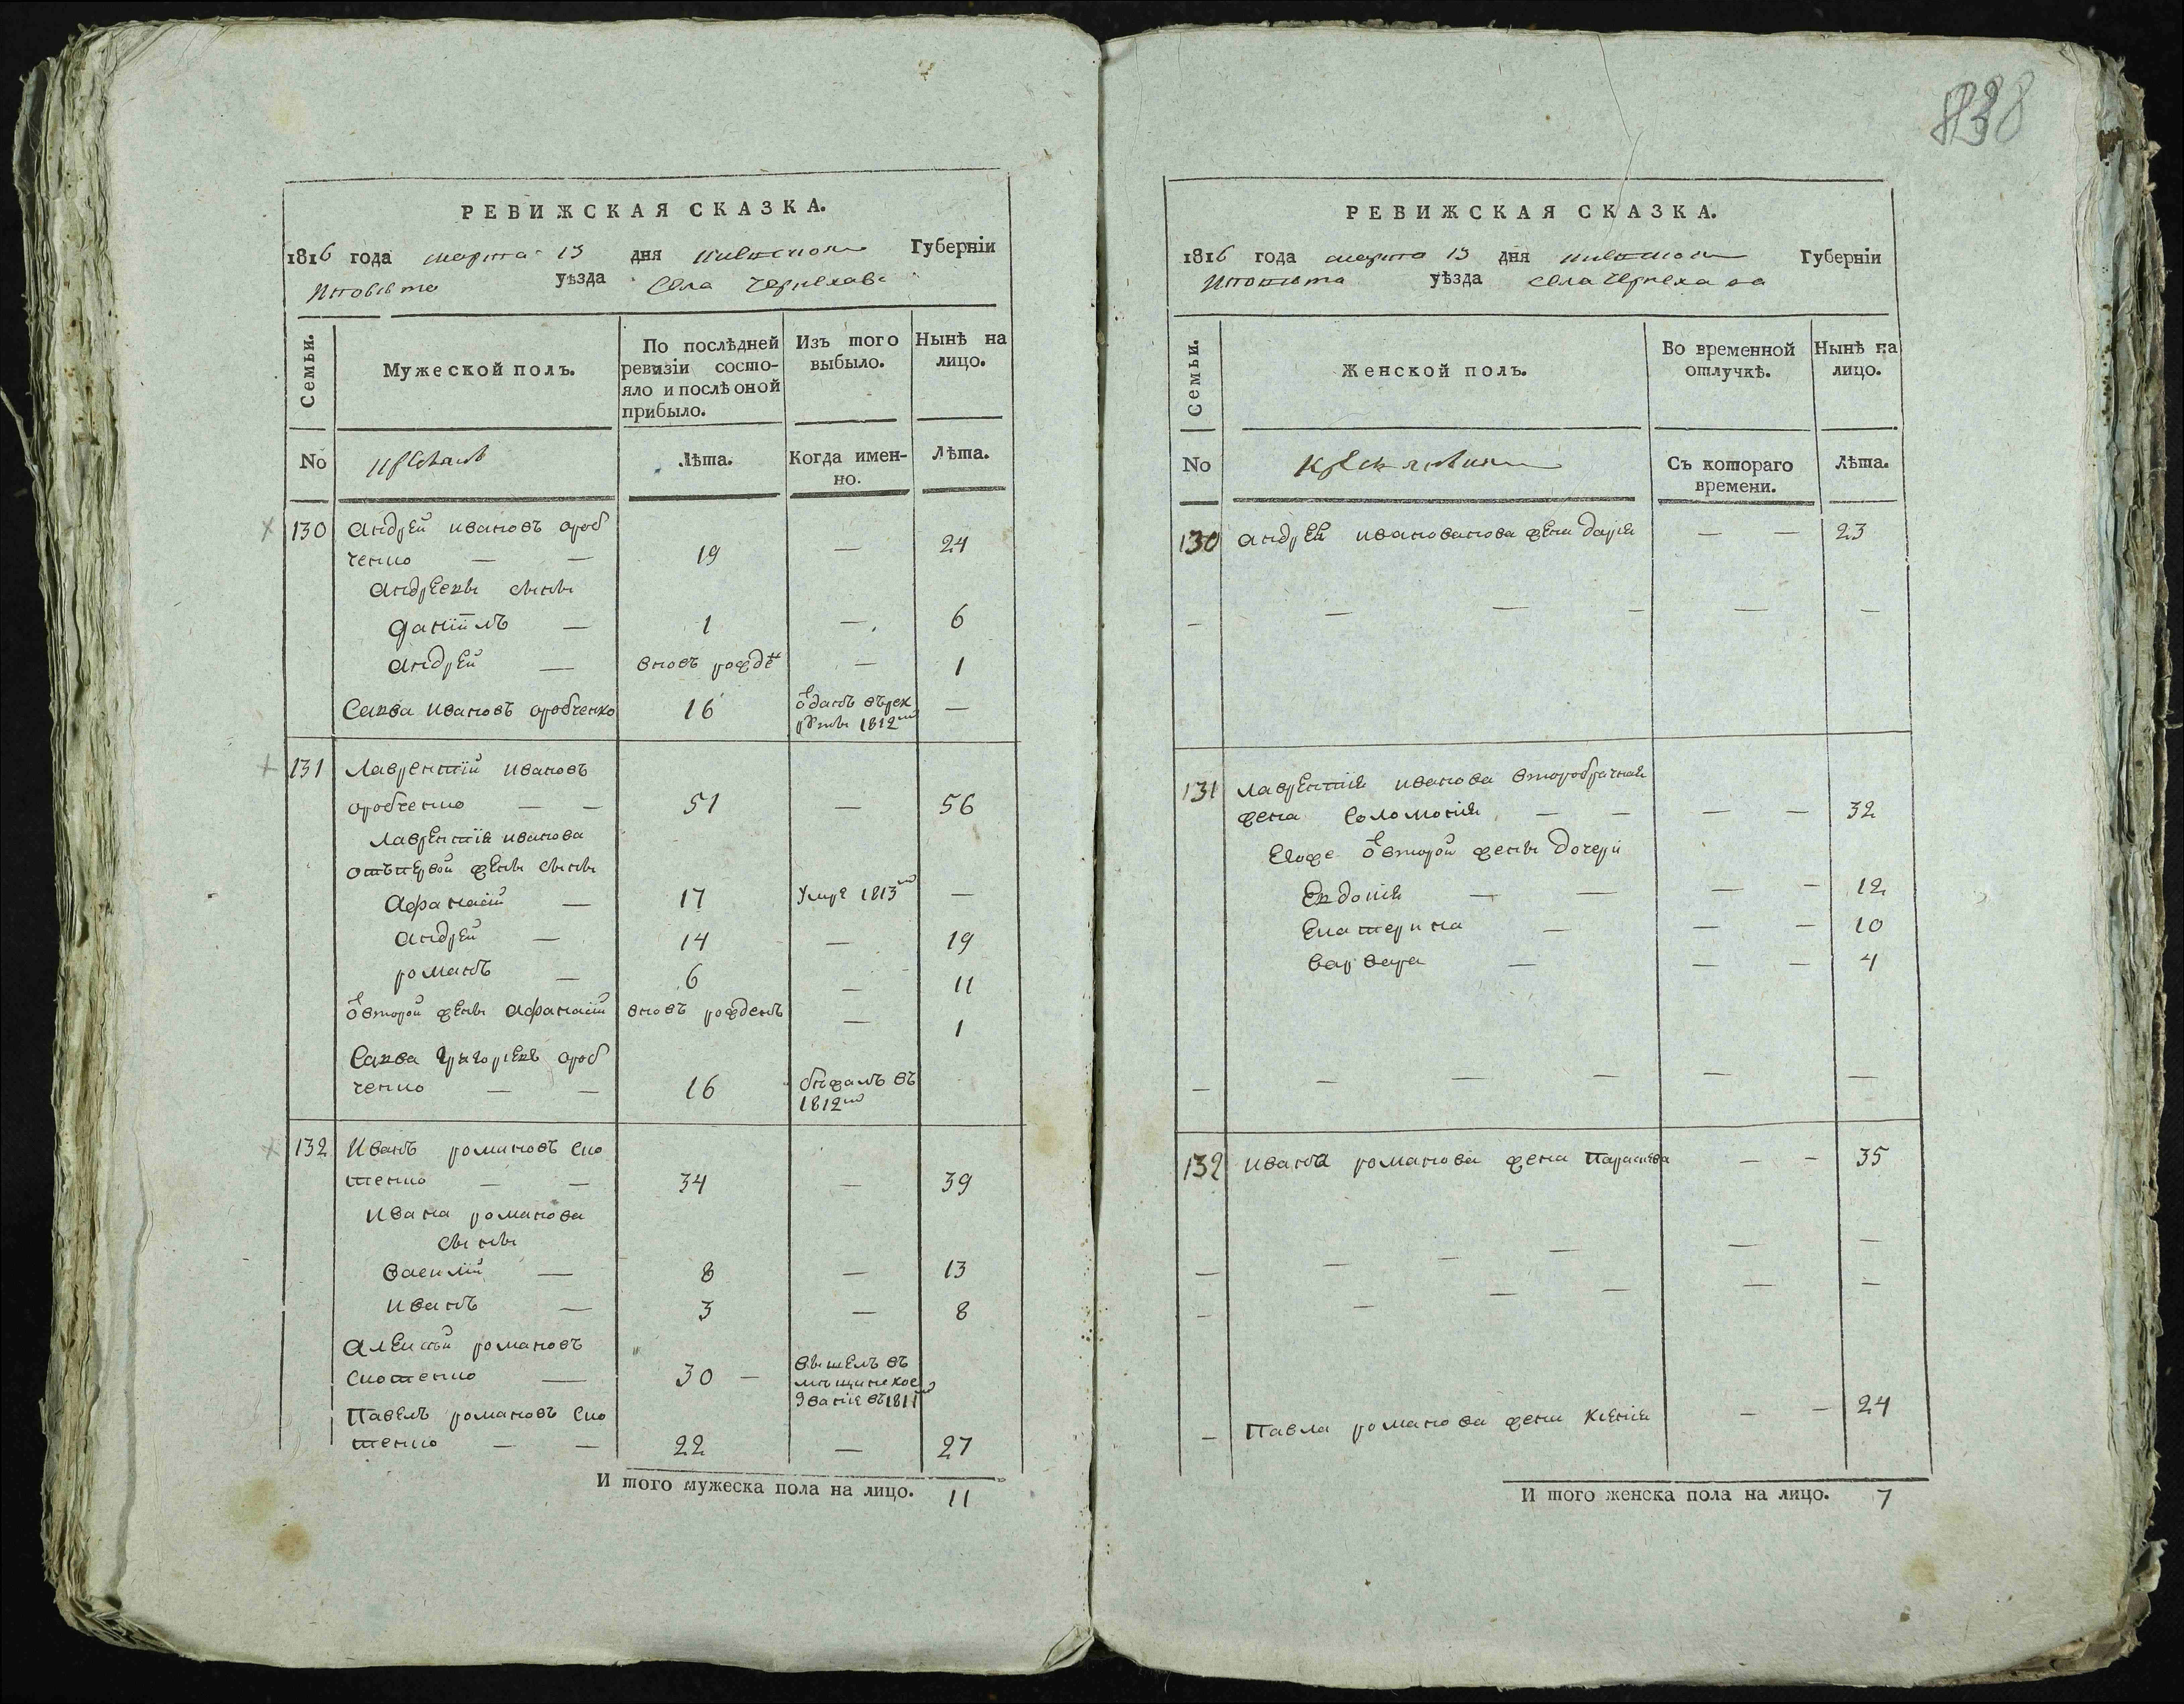 838
РЕВИЖСКАЯ СКАЗКА.
1816 года марта 13 дня Киевской Губерніи
уѣзда села Черняхова
Семьи.
Мужеской полъ.
По послѣдней ревизіи состо-
яло и послѣ оной
прибыло.
Изъ того
выбыло.
Нынѣ на
лицо.
No
Лѣта.
Когда имен-
но.
Лѣта.
130 Андрей Ивановъ Ороб
ченко — — 19 — 24
Андреевы сыны
Даніилъ — 1 — 6
Андрей — вновь рожде — 1
Савва Ивановъ Оробченко 16 ѿданъ въ рек
руты 1812го —
131 Лаврентій Ивановъ
Оробченко — — 51 — 56
Лаврентія Иванова
отъ первой жены сыны
Афанасій — 17 умре 1813го —
Андрей — 14 — 19
Романъ — 6 — 11
ѿ второй жены Афанасій вновь рожденъ — 1
Савва Григорьевъ Ороб
ченко — — 16 бѣжалъ въ
1812го
132 Иванъ Романовъ Ско
тенко — — 34 — 39
Ивана Романова
сыны
Василій — 8 — 13
Иванъ — 3 — 8
Алексѣй Романовъ
Скотенко — 30 — вышелъ въ
мещинское
званіе въ 1811го
Павелъ Романовъ Ско
тенко — — 22 — 27
И того мужеска пола на лицо. 11
РЕВИЖСКАЯ СКАЗКА.
1816 года марта 13 дня Киевской Губерніи
уѣзда села Черняхова
Семьи.
Женской полъ.
Во временной
отлучкѣ.
Нынѣ на
лицо.
No
Съ котораго
времени.
Лѣта.
130 Андрея Иванованова жена Дарія — — 23
— — — — — —
131 Лаврентія Иванова второбрачная
жена Соломонія — — — — 32
Егоже ѿ второй жены дочери
Евдокія — — — — 12
Екатерина — — — 10
Варвара — — — 4
— — — — — —
132 Ивана Романова жена Параскева — — 35
— — — — —
— — — — — —
— Павла Романова жена Ксенія — — 24
И того женска пола на лицо. 7